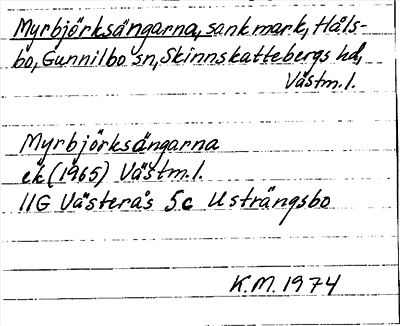 Myrbjörksängarna, sank mark, Håls-
bo, Gunnilbo sn, Skinnskattebergs hd,
Västm.l.
Myrbjörksängarna
ek (1965) Västm.l.
11G Västerås 5c Usträngsbo
K.M. 1974